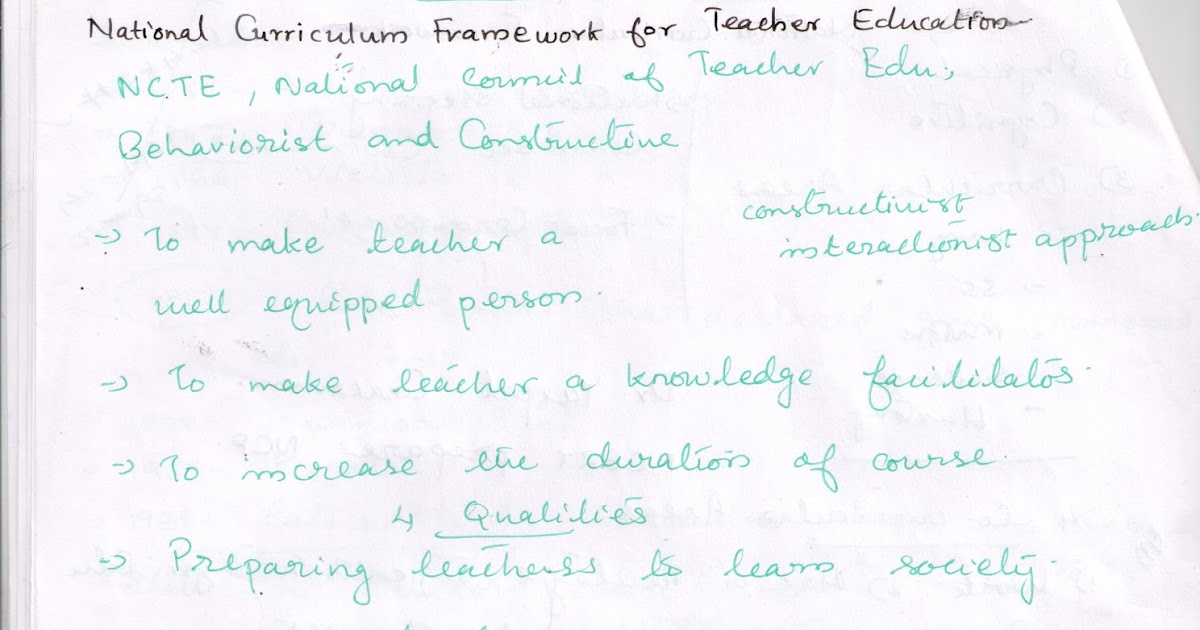 National Curriculum Framework for Teacher Education
NCTE, National Council of Teacher Edu;
Behaviorist and Constructive
constructivist
interactionist approach.
→ To make teacher a
well equipped person.
→ To make teacher a knowledge facilitator.
→ To increase the duration of course.
↳ Qualities
→ Preparing teachers to learn society.